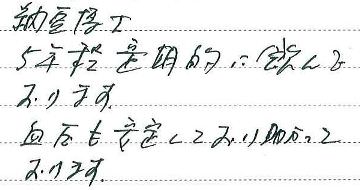 納豆博士
5年程定期的に飲んで
おります。
血圧も安定しており助かって
おります。